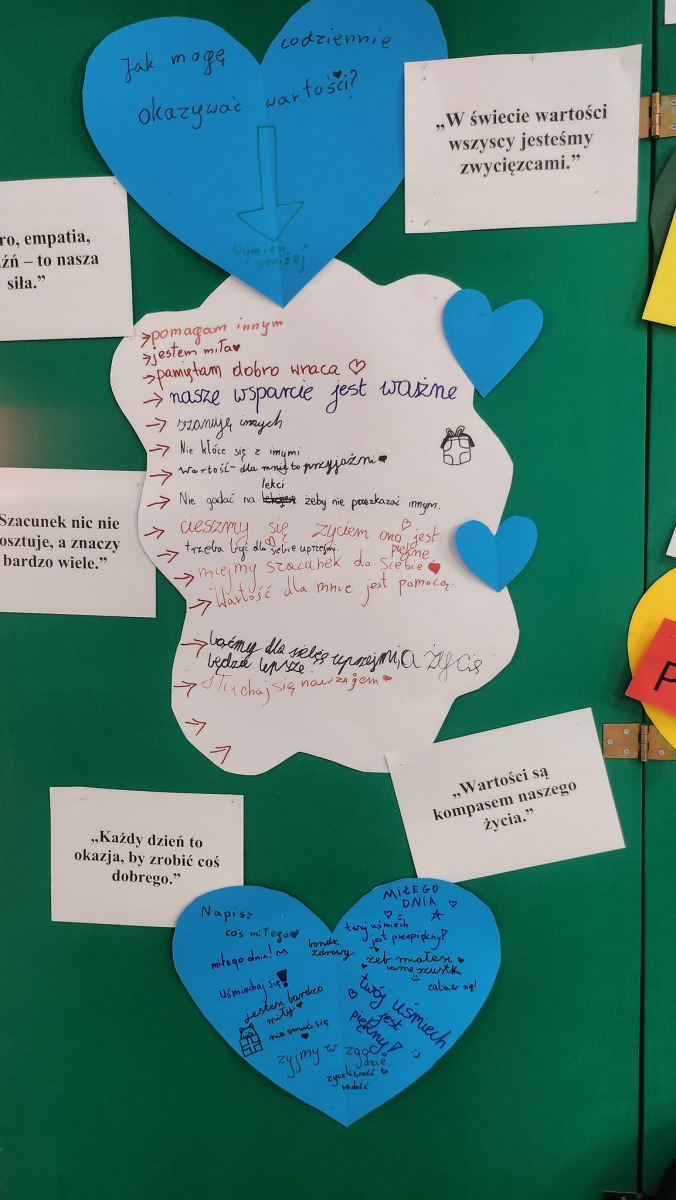 Jak mogę codziennie
okazywać wartości?
Wymień
poniżej
„W świecie wartości
wszyscy jesteśmy
zwycięzcami.”
ro, empatia,
źń – to nasza
siła.”
pomagam innym
jestem miła
pamiętam dobro wraca
nasze wsparcie jest ważne
szanuję innych
Nie kłóce się z innymi
wartość- dla mnię to przyjaźni
lekci
Nie gadać na żeby nie przezkazać innym.
cieszmy się życiem ono jest
piękne
trzeba być dla siebie uprzejmi.
miejmy szacunek do siebie
Wartość dla mnie jest pomocą.
bądźmy dla siebie uprzejmi, a życie
będzie lepsze
Słuchaj się nawzajem
Szacunek nic nie
osztuje, a znaczy
bardzo wiele.”
P
„Wartości są
kompasem naszego
życia.”
„Każdy dzień to
okazja, by zrobić coś
dobrego.”
Napisz
coś miłego
miłego dnia!
Uśmiechaj się!
jesteś bardzo
miły
nie smuć się
żyjmy w zgodzie
życzliwość to
radość
bondz
zdrowy
MIŁEGO
DNIA
twój uśmiech
jest przepiękny!
żeb miałeś
same szustki
twój uśmiech
jest
piękny! :)